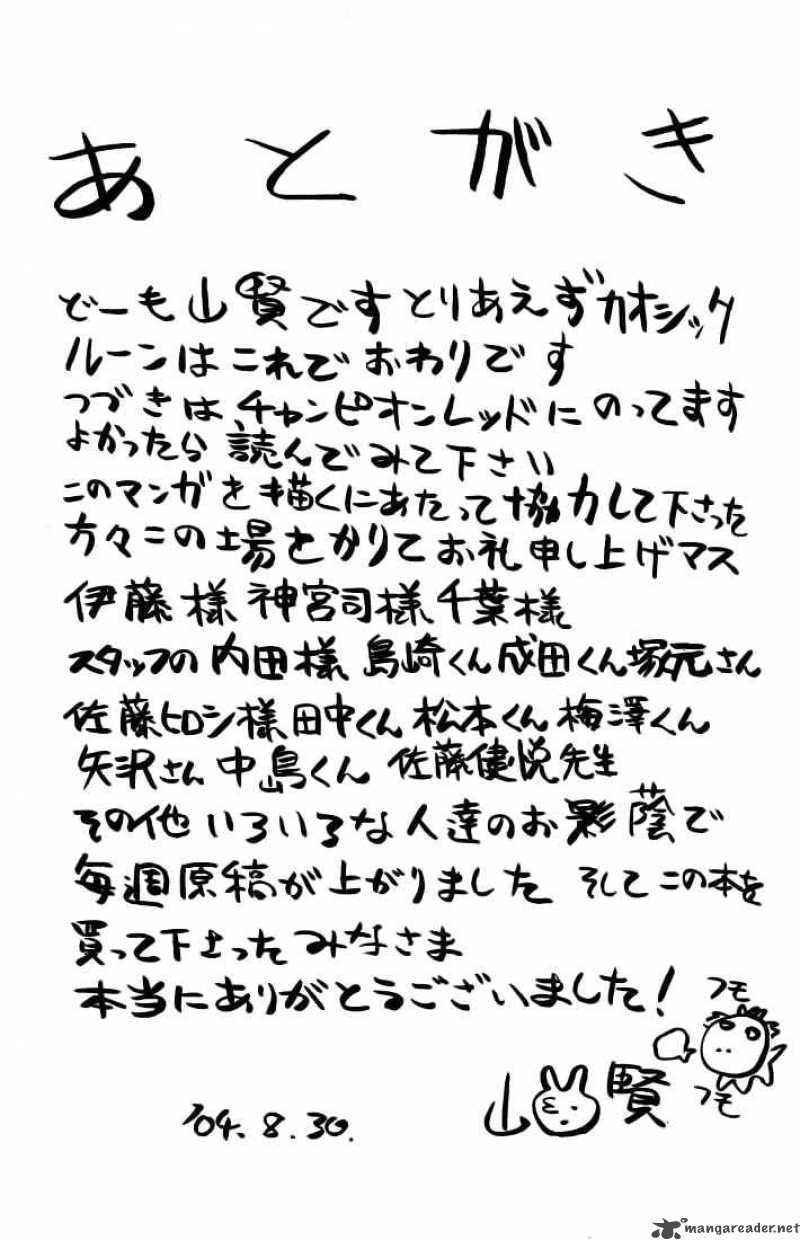 あとがき
どーも山賢です とりあえずカオシック
ルーンはこれでおわりです
つづきは、チャンピオンレッドにのってます
よかったら読んでみて下さい
このマンガを描くにあたって協力して下さった
方々この場をかりてお礼申し上げマス
伊藤様 神宮司様 千葉様
スタッフの内田様 島崎くん 成田くん 塚元さん
佐藤ヒロシ様 田中くん 松本くん 梅澤くん
矢沢さん 中島くん 佐藤健悦先生
その他いろいろな人達のお影蔭で
毎週原稿が上がりました そしてこの本を
買って下さったみなさま
本当にありがとうございました!
フモ
フモ
山賢
'04. 8. 30.
mangareader.net